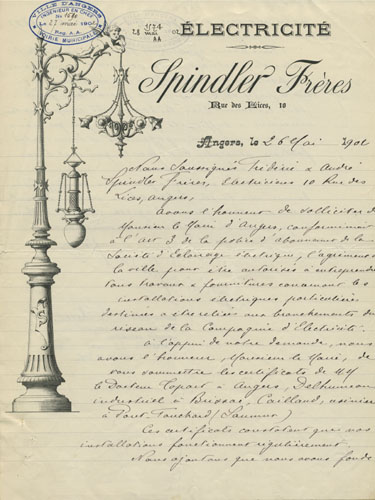 VILLE D'ANGERS
INGÉNIEUR EN CHEF
VOIRIE MUNICIPALE
ÉLECTRICITÉ
Spindler Frères
Rue des Lices, 10
Angers, le 26 Mai 1902
Nous soussignés Frédéric & André
Spindler Frères, Electriciens 10 Rue des
Lices, Angers
avons l'honneur de solliciter de
Monsieur le Maire d'Angers, conformément
à l'art 3 de la police d'abonnement de la
Société d'Eclairage électrique, l'agrément de
la ville pour être autorisés à entreprendre
tous travaux & fournitures concernant les
installations électriques particulières
destinées à être reliées aux branchements du
réseau de la Compagnie d'Electricité.
A l'appui de notre demande, nous
avons l'honneur, Monsieur le Maire, de
vous soumettre les certificats de MM
le Docteur à Angers,
industriel à Brissac, Cailland,
à Pont Fouchard (Saumur)
Ces certificats constatent que nos
installations fonctionnent régulièrement.
Nous ajoutons que nous avons fondé